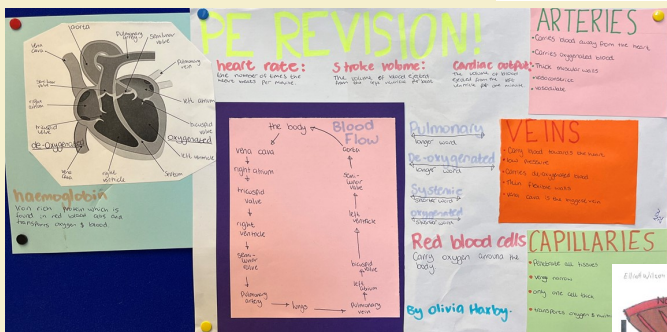 PE REVISION!
aorta
Pulmonary
artery
semi-lunar
valve
vena
cava
Pulmonary
vein
semi-lunar
valve
left atrium
right
atrium
bicuspid
valve
tricuspid
valve
oxygenated
de-oxygenated
left ventricle
vena
cava
right
ventricle
septum
haemoglobin
Iron rich protein which is
found in red blood cells and
transports oxygen & blood.
heart rate:
the number of times the
heart beats per minute.
Stroke volume:
The volume of blood ejected
from the left ventricle per beat.
Cardiac output:
the volume of blood
ejected from the left
ventricle per one minute.
Blood
Flow
the body
vena cava
right atrium
tricuspid
valve
right
ventricle
semi-
lunar
valve
Pulmonary
artery
lungs
Pulmonary
vein
left
atrium
bicuspid
valve
left
ventricle
semi-
lunar
valve
aorta
Pulmonary
longer word
De-oxygenated
longer word
Systemic
shorter word
oxygenated
shorter word
Red blood cells
Carry oxygen around the
body.
By Olivia Haxby.
ARTERIES
• Carries blood away from the heart
• Carries oxygenated blood
• Thick muscular walls
• vasoconstrict
• vasodilate
VEINS
• Carry blood towards the heart
• low pressure
• Carries de-oxygenated blood
• Thin flexible walls
• Vena cava is the biggest vein
CAPILLARIES
• Penetrate all tissues
• very narrow
• only one cell thick
• transports oxygen &